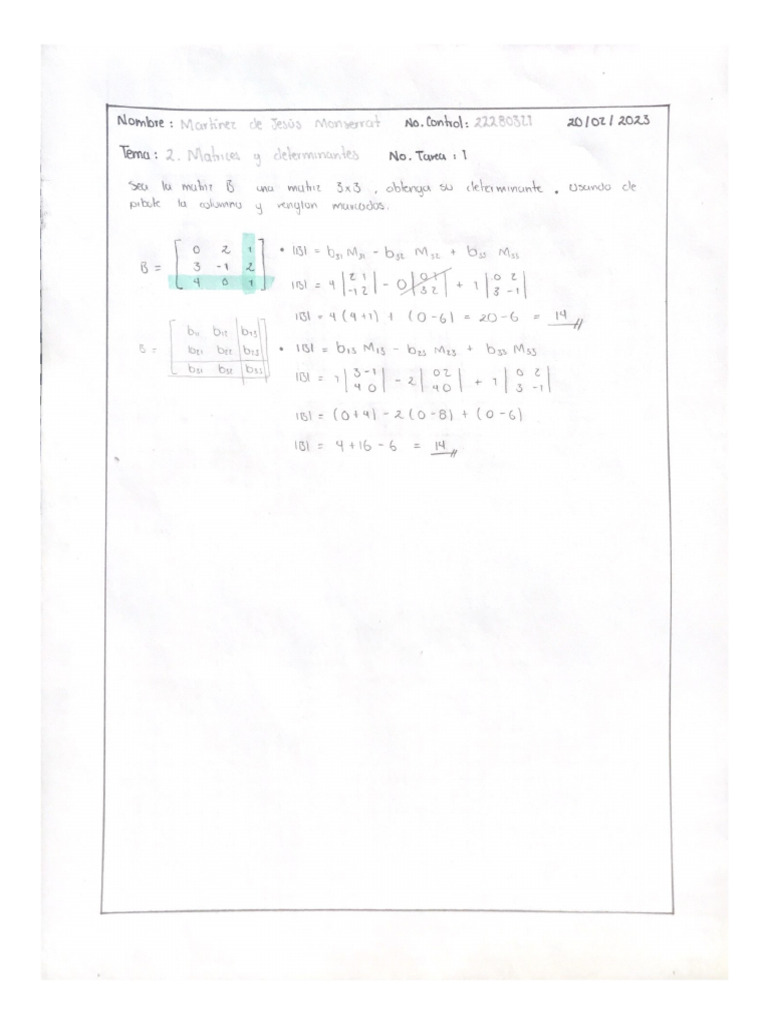 Nombre: Martínez de Jesús Monserrat No. Control: 22280321 20/02/2023
Tema: 2. Matrices y determinantes No. Tarea: 1
Sea la matriz B una matriz 3x3, obtenga su determinante, usando de
pibote la columna y renglon marcados.
B = [ 0 2 1 ] • |B| = b₃₁ M₃₁ - b₃₂ M₃₂ + b₃₃ M₃₃
[ 3 -1 2 ]
[ 4 0 1 ] |B| = 4 |2 1; -1 2| - 0 |0 1; 3 2| + 1 |0 2; 3 -1|
|B| = 4(4+1) + (0-6) = 20-6 = 14
B = [ b₁₁ b₁₂ b₁₃ ]
[ b₂₁ b₂₂ b₂₃ ] • |B| = b₁₃ M₁₃ - b₂₃ M₂₃ + b₃₃ M₃₃
[ b₃₁ b₃₂ b₃₃ ] |B| = 1 |3 -1; 4 0| - 2 |0 2; 4 0| + 1 |0 2; 3 -1|
|B| = (0+4) - 2(0-8) + (0-6)
|B| = 4+16-6 = 14